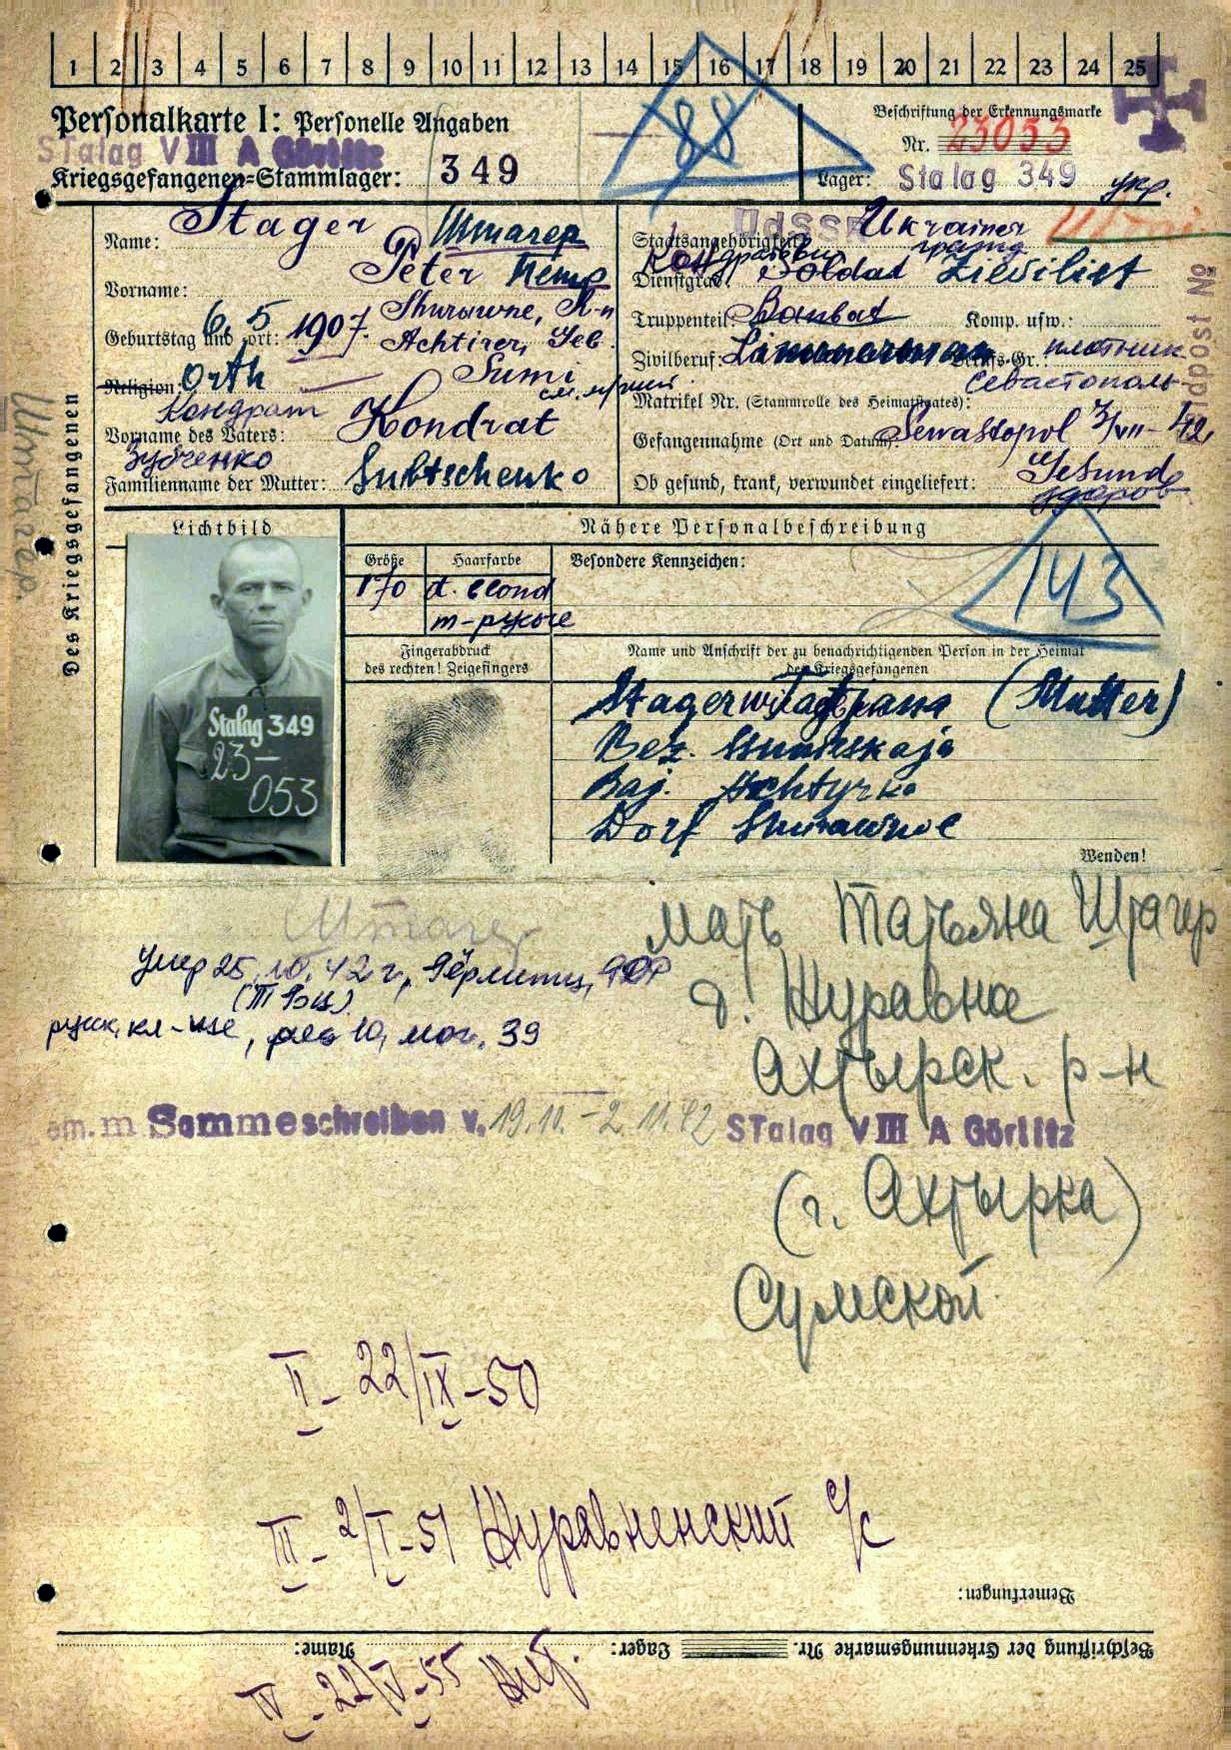 1 2 3 4 5 6 7 8 9 10 11 12 13 14 15 16 17 18 19 20 21 22 23 24 25
Personalkarte I: Personelle Angaben
88
Beschriftung der Erkennungsmarke
Nr. 23053
Stalag VIII A Görlitz
Kriegsgefangenen-Stammlager: 349
Lager: Stalag 349
укр.
Des Kriegsgefangenen
Штагер.
Name: Stager Штагер
Vorname: Peter Петр
Кондратьевич
Geburtstag und -ort: 6. 5 1907. Shurawne, R-n
Achtirer, Geb.
Sumi
Religion: Orth
Кондрат
Vorname des Vaters: Kondrat
Зубченко
Familienname der Mutter: Subtschenko
UdSSR
Staatsangehörigkeit: Ukrainer
Dienstgrad: Soldat Zievilist
Truppenteil: Baubat Komp. usw.:
Zivilberuf: Berufs-Gr.: плотник
Севастополь
Matrikel Nr. (Stammrolle des Heimatstaates):
Gefangennahme (Ort und Datum): Sewastopol 3/VII-42
Ob gesund, krank, verwundet eingeliefert: Gesund
здоров
Feldpost No
Lichtbild
Nähere Personalbeschreibung
Größe Haarfarbe Besondere Kennzeichen:
170 d. blond
т-русые
143
Fingerabdruck
des rechten! Zeigefingers
Name und Anschrift der zu benachrichtigenden Person in der Heimat
des Kriegsgefangenen
Tatjana (Mutter)
Bez. Sumskaja
Raj. Achtyrka
Dorf Shurawnoe
Stalag 349
23-
053
Wenden!
Штагер
мать Татьяна Штагер
д. Журавное
Ахтырск. р-н
(г. Ахтырка)
Сумской
умер 25.10.42 г, Гёрлитц,
русск. кл-ще, ряд 10, мог. 39
Sammelschreiben v. 19.10.-2.11.42 STalag VIII A Görlitz
II - 22/IX-50
III - 2/I-51 Журавненский с/с
Bemerkungen:
Beschriftung der Erkennungsmarke Nr. Lager: Name:
IV - 22/V-55